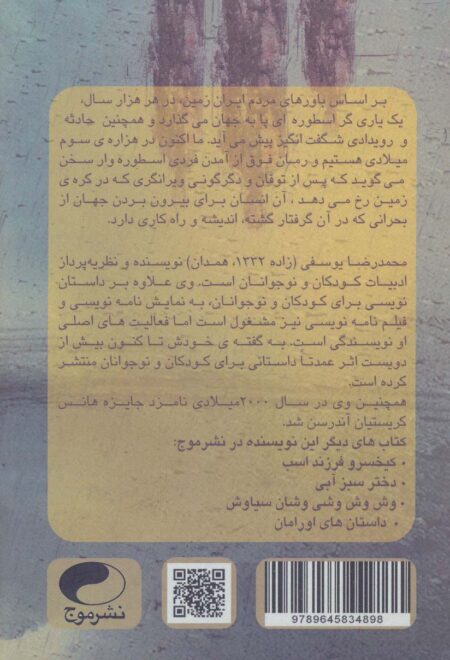 بر اساس باورهای مردم ایران زمین، در هر هزار سال،
یک یاری گر اسطوره ای پا به جهان می گذارد و همچنین حادثه
و رویدادی شگفت انگیز پیش می آید. ما اکنون در هزاره ی سوم
میلادی هستیم و رمان فوق از آمدن فردی اسطوره وار سخن
می گوید که پس از توفان و دگرگونی ویرانگری که در کره ی
زمین رخ می دهد، آن انسان برای بیرون بردن جهان از
بحرانی که در آن گرفتار گشته، اندیشه و راه کاری دارد.
محمدرضا یوسفی (زاده ۱۳۳۲، همدان) نویسنده و نظریه‌پرداز
ادبیات کودکان و نوجوانان است. وی علاوه بر داستان
نویسی برای کودکان و نوجوانان، به نمایش نامه نویسی و
فیلم نامه نویسی نیز مشغول است اما فعالیت های اصلی
او نویسندگی است. به گفته ی خودش تا کنون بیش از
دویست اثر عمدتاً داستانی برای کودکان و نوجوانان منتشر
کرده است.
همچنین وی در سال ۲۰۰۰میلادی نامزد جایزه هانس
کریستیان آندرسن شد.
کتاب های دیگر این نویسنده در نشرموج:
• کیخسرو فرزند اسب
• دختر سبز آبی
• وش وش وشی وشان سیاوش
• داستان های اورامان
نشرموج
9789645834898